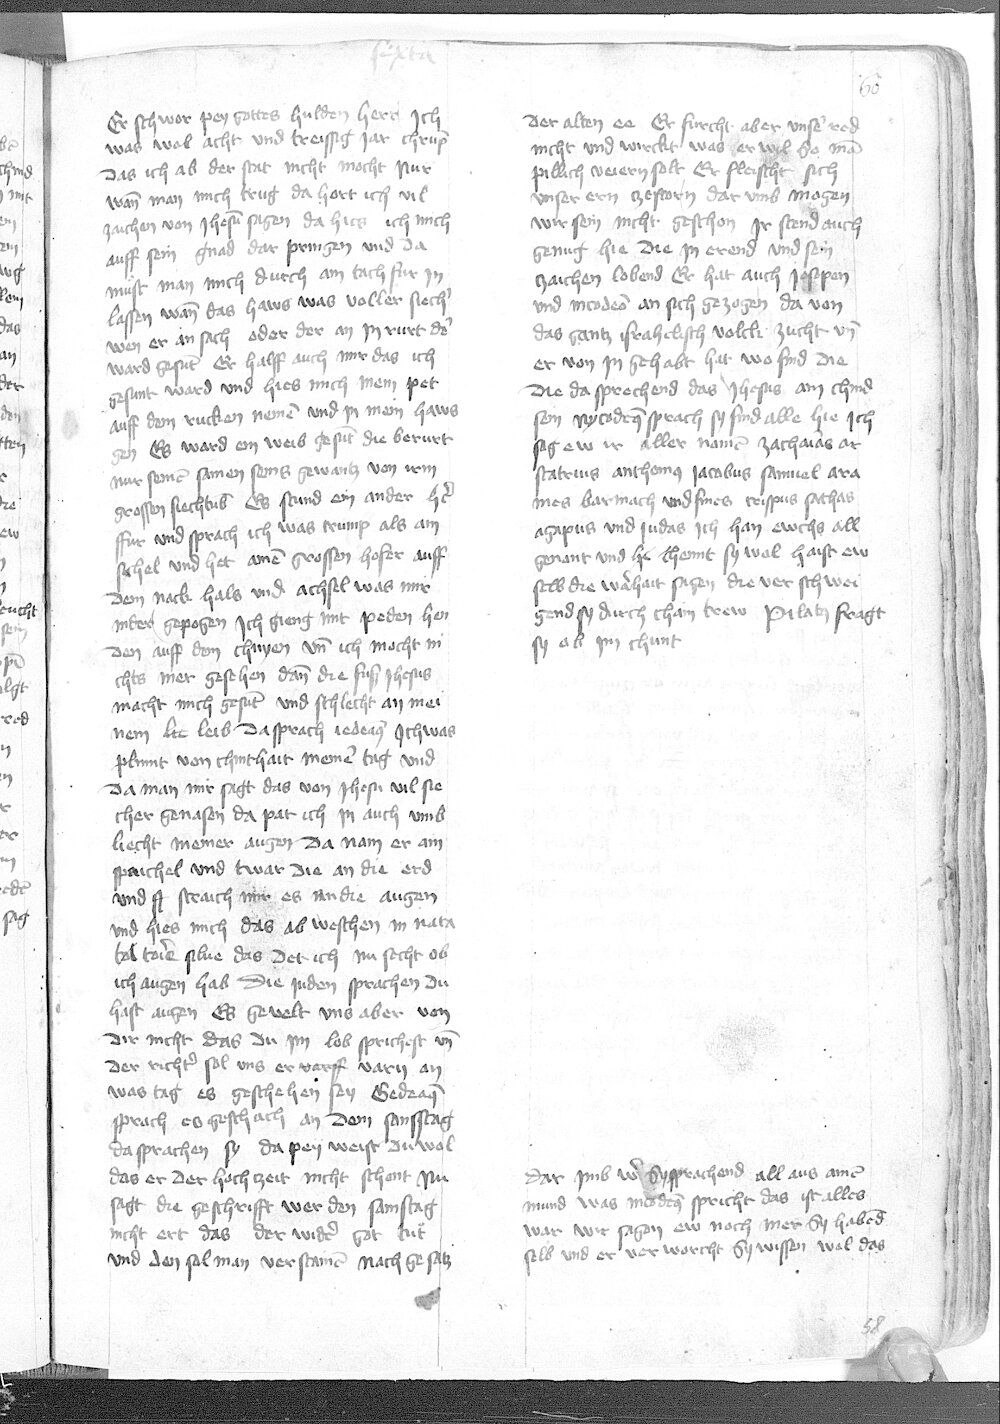 sexta
60
Er schwor pey gottes hulden herr Ich
was wol acht und treissig jar chrup̄
Das ich ab der stat nicht mocht Nur
wan̄ man mich trug da hort ich vil
zaichen von Jhesū sagen da hies ich mich
auff sein gnad dar pringen und Da
must man mich durch ain tach für in
lassen wan̄ das haws was voller siech
wen er an sach oder der an In rurt der
ward gesūt Er halff auch mir das ich
gesunt ward und hies mich mein pet
auff dem rucken nemē und in mein haws
gen Es ward ein weib gesūt die berurt
nur seinē samen seins gewantz von irm
grossen siechtūb Es stund ein ander h̄r
fur und sprach ich was trump als ain
sichel und het ainē grossen hofer auff
Dem nack hals und achsel was mir
nider gepogen Ich gieng mit peden hen
den auff dem chnyen vn̄ ich mocht ni
chts mer gesehen dan̄ die fuss Jhesus
macht mich gesūt und schlecht an mei
nem leib Da sprach iedeaq Ich was
plinnt von chinthait meinē tag und
Da man mir sagt das von Jhesu vil sie
cher genasen da pat ich in auch umb
liecht meiner augen Da nam er ain
spaichel und twar die an die erd
und straich mir es an die augen
und hies mich das ab weschen in nata
tol toiē silue das Det ich nu secht ob
ich augen hab Die juden sprachen Du
hast augen Es gevelt uns aber von
Dir nicht das Du im lob sprichest vn̄
Der richt sol uns er varff varn an
was tag es geschehen sey Gedeaq
sprach es geschach an Dem samsstag
da sprachen sy da pey weist Du wol
das er Der hochzeit nicht schont Nu
sagt die geschrifft wer den samstag
nicht ert das der wider got tut
und den sol man verstainē nach gesatz
Der alten ee Er furcht aber unser red
nicht und wirckt was er wil so mā
pillich veiern solt Er fleischt sich
unser ern zestorn dar umb mogen
wir sein nicht geschon Ir stend auch
genug hie Die In erend und sein
tzaichen lobend Er hat auch Josepen
und nicodeō an sich gezogen da von
das gantz israhelisch volck zucht vn̄
er von In gehabt hat wo sind Die
Die da sprechend das Jhesus ain chind
sein Nycodeq sprach sy sind alle hie Ich
sag ew ir aller namē zachaias ar
statrius anthonius Jacobus samuel ara
mes barmach und sines crispus sathas
agapus und Judas Ich han ewchs all
genent und ir chennt sy wol haist ew
selb die warhait sagen die ver schwei
gend sy durch chain trew Pilatz fragt
sy ob im chunt
dar umb w Sy sprachend all aus ainē
mund was nicodeq spricht das ist alles
war wir sagen ew noch mer Sy habēd
selb und er ver worcht Sy wissen wol das
58